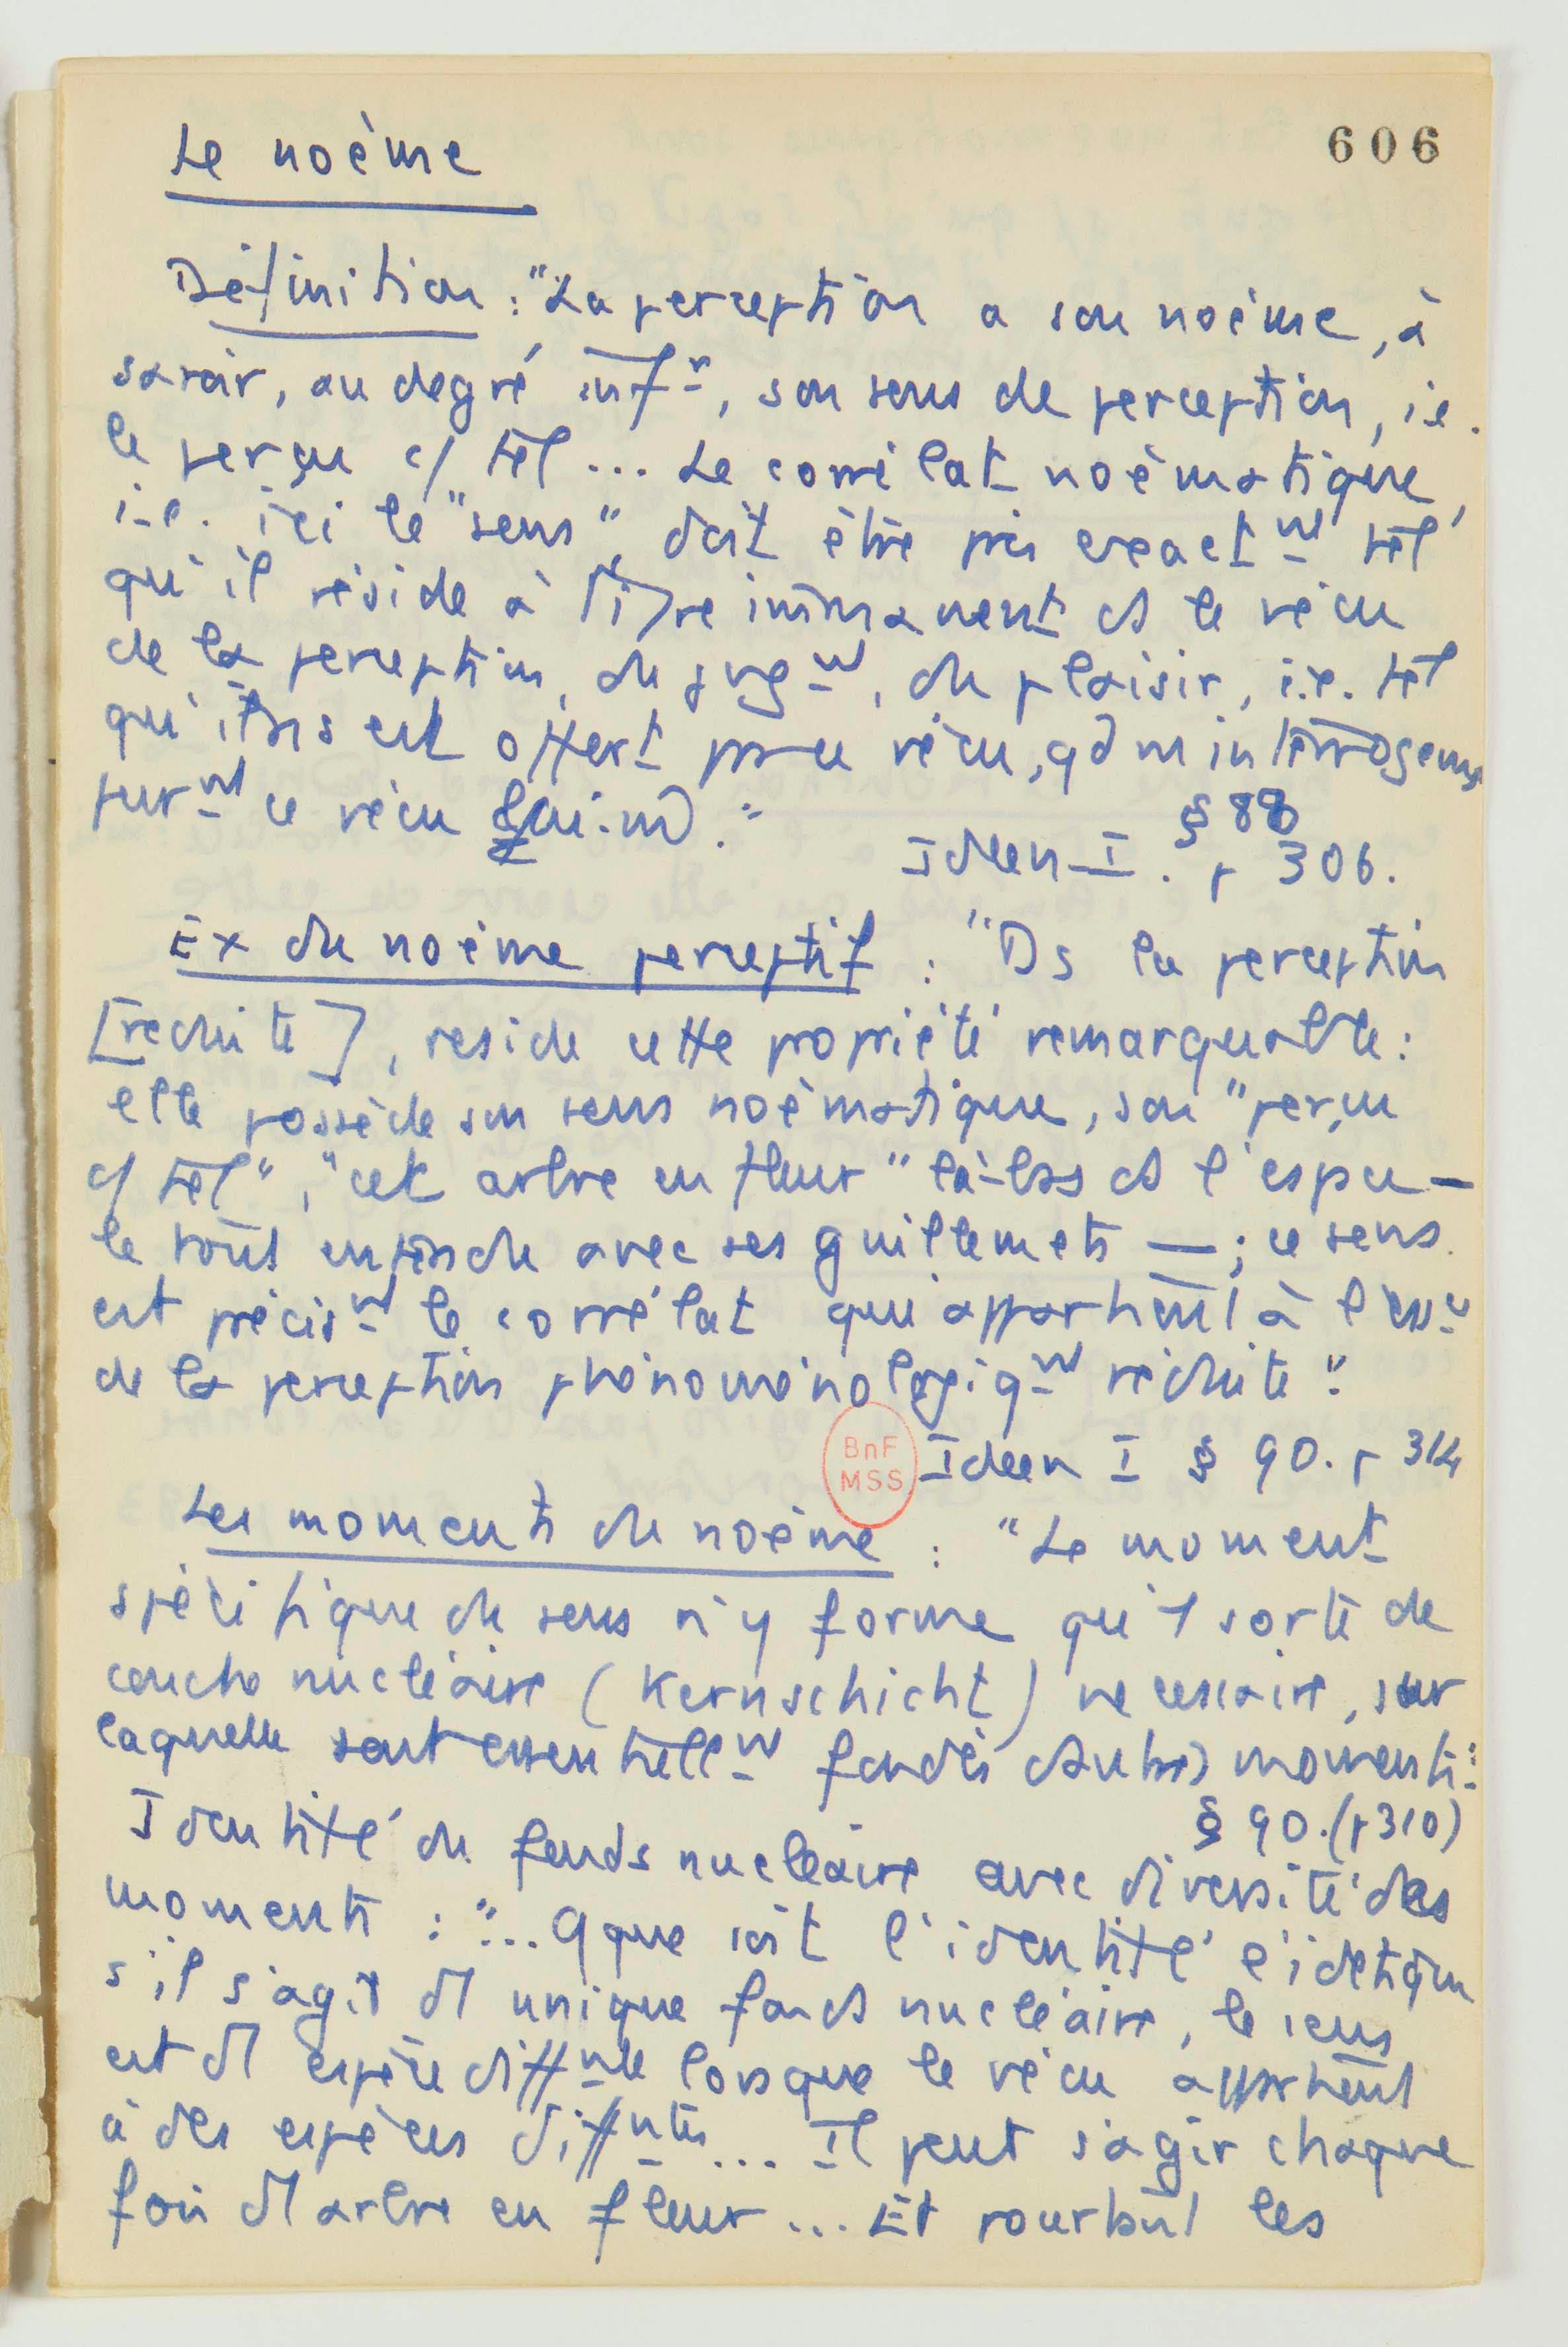 606
Le noème
Définition : "La perception a son noème, à
savoir, au degré infr, son sens de perception, i.e.
le perçu c/ tel ... Le corrélat noèmatique,
i.e. ici le "sens", doit être pris exactnt tel
qu'il réside à titre immanent ds le vécu
de la perception, du jugnt, du plaisir, i.e. tel
qu'il ns est offert par ce vécu, qd ns interrogeons
purnt ce vécu lui-m."
§ 88
Ideen I. p 306.
Ex du noème perceptif : "Ds la perception
[réduite], reside cette propriété remarquable :
elle possède son sens noèmatique, son "perçu
c/ tel", "cet arbre en fleur" là-bas ds l'espace —
le tout entendu avec ses guillemets — ; ce sens
est précisnt le corrélat qui appartient à l'esse
de la perception phénoménologiqnt réduite".
BnF
MSS
Ideen I § 90. p 314
Les moments du noème : "Le moment
spécifique du sens n'y forme qu'1 sorte de
couche nucléaire (Kernschicht) necessaire, sur
laquelle sont essentiellnt fondés d'autres moments"
§ 90. (p 310)
Identité du fonds nucléaire avec diversité des
moments : "... qque soit l'identité eidetique
s'il s'agit d'1 unique fonds nucléaire, le sens
est d'1 espèce diffnte lorsque le vécu appartient
à des espèces diffntes ... Il peut s'agir chaque
fois d'1 arbre en fleur ... Et pourtant les